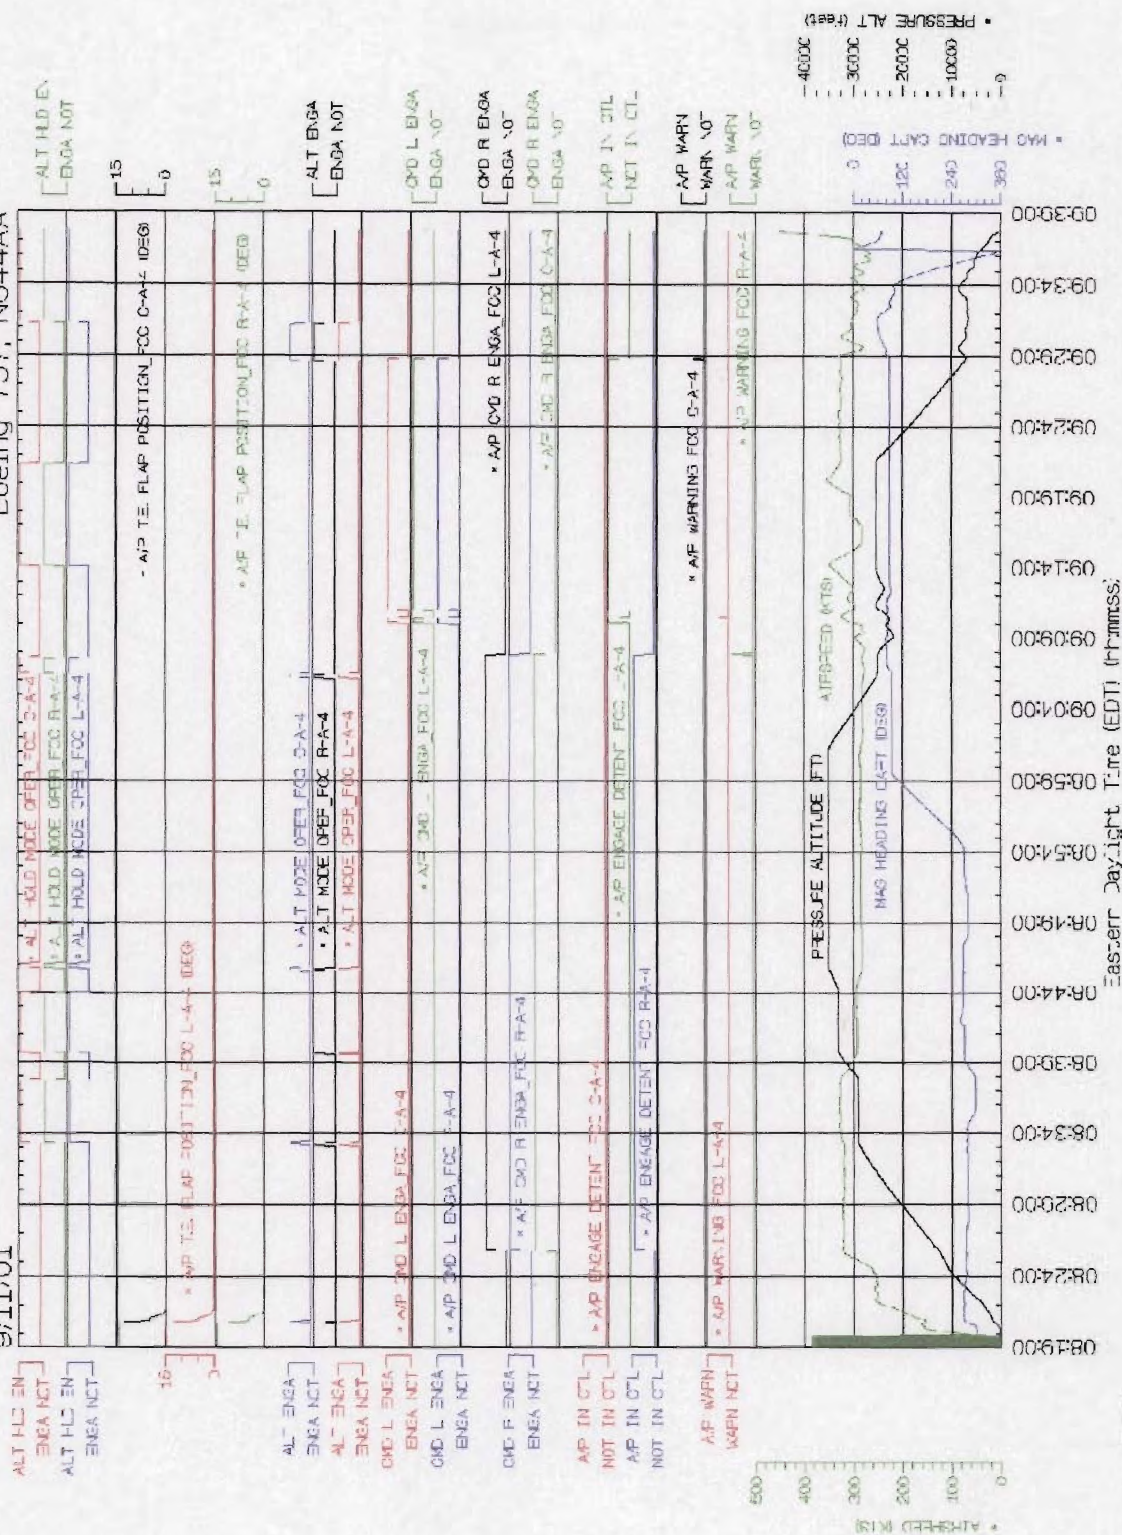 9/11/01
Boeing 757, N644AA
ALT HLD EN
ENGA NOT
ALT HLD EN
ENGA NOT
15
0
ALT ENGA
ENGA NOT
ALT ENGA
ENGA NOT
CMD L ENGA
ENGA NOT
CMD L ENGA
ENGA NOT
CMD R ENGA
ENGA NOT
A/P IN CTL
NOT IN CTL
A/P IN CTL
NOT IN CTL
A/P WARN
WARN NOT
500
400
300
200
100
0
* AIRSPEED (KTS)
* ALT HOLD MODE OPER_FCC C-A-4
* ALT HOLD MODE OPER_FCC R-A-4
* ALT HOLD MODE OPER_FCC L-A-4
* A/P T.E. FLAP POSITION_FCC C-A-4 (DEG)
* A/P T.E. FLAP POSITION_FCC L-A-4 (DEG)
* A/P T.E. FLAP POSITION_FCC R-A-4 (DEG)
* ALT MODE OPER_FCC C-A-4
* ALT MODE OPER_FCC R-A-4
* ALT MODE OPER_FCC L-A-4
* A/P CMD L ENGA_FCC C-A-4
* A/P CMD L ENGA_FCC L-A-4
* A/P CMD L ENGA_FCC R-A-4
* A/P CMD R ENGA_FCC L-A-4
* A/P CMD R ENGA_FCC R-A-4
* A/P CMD R ENGA_FCC C-A-4
* A/P ENGAGE DETENT FCC C-A-4
* A/P ENGAGE DETENT FCC L-A-4
* A/P ENGAGE DETENT FCC R-A-4
* A/P WARNING FCC C-A-4
* A/P WARNING FCC L-A-4
* A/P WARNING FCC R-A-4
PRESSURE ALTITUDE (FT)
AIRSPEED (KTS)
MAG HEADING CAPT (DEG)
ALT HLD EN
ENGA NOT
15
0
15
0
ALT ENGA
ENGA NOT
CMD L ENGA
ENGA NOT
CMD R ENGA
ENGA NOT
CMD R ENGA
ENGA NOT
A/P IN CTL
NOT IN CTL
A/P WARN
WARN NOT
A/P WARN
WARN NOT
0
120
240
360
* MAG HEADING CAPT (DEG)
40000
30000
20000
10000
0
* PRESSURE ALT (feet)
08:19:00
08:24:00
08:29:00
08:34:00
08:39:00
08:44:00
08:49:00
08:54:00
08:59:00
09:04:00
09:09:00
09:14:00
09:19:00
09:24:00
09:29:00
09:34:00
09:39:00
Eastern Daylight Time (EDT) (hhmmss)